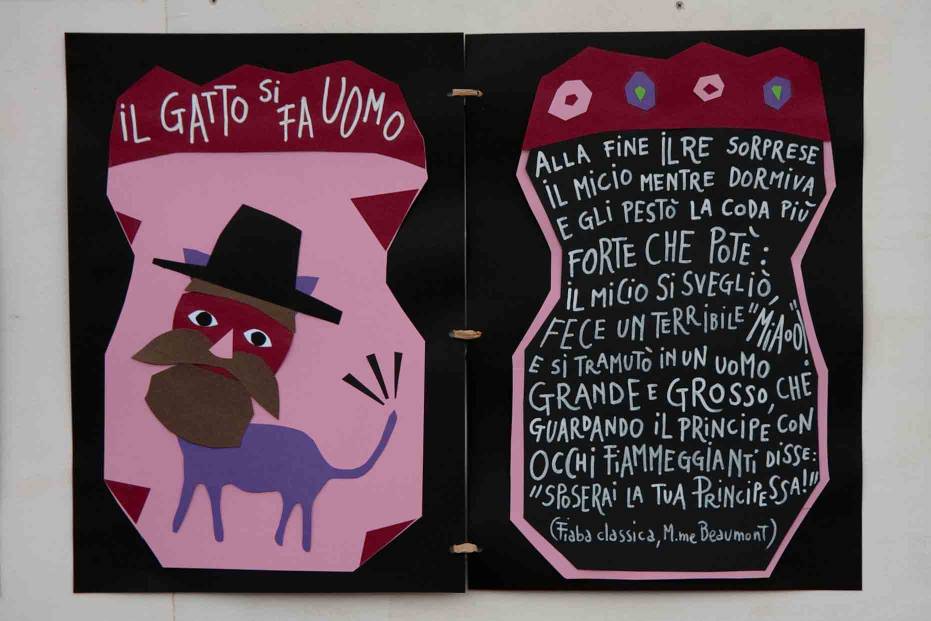 iL GATTO Si FA UOMO
ALLA FINE iL RE SORPRESE
iL MiCiO MENTRE DORMiVA
E GLi PESTÒ LA CODA PiÙ
FORTE CHE POTÈ:
iL MiCiO Si SVEGLiÒ,
FECE UN TERRiBiLE "MiAOO!"
E Si TRAMUTÒ iN UN UOMO
GRANDE E GROSSO, CHE
GUARDANDO iL PRiNCiPE CON
OCCHi FiAMMEGGiANTi DiSSE:
"SPOSERAi LA TUA PRiNCiPESSA!"
(Fiaba classica, M.me Beaumont)